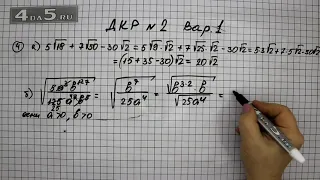 4 ДА 5 .RU
ДКР №2 Вар. 1
④ а) 5√18 + 7√50 - 30√2 = 5√9·√2 + 7√25·√2 - 30√2 = 5·3√2 + 7·5√2 - 30√2
= (15 + 35 - 30)√2 = 20√2
= √(b⁷/25a⁴) = √(b³·² · b)/√(25a⁴) =
если a>0, b>0